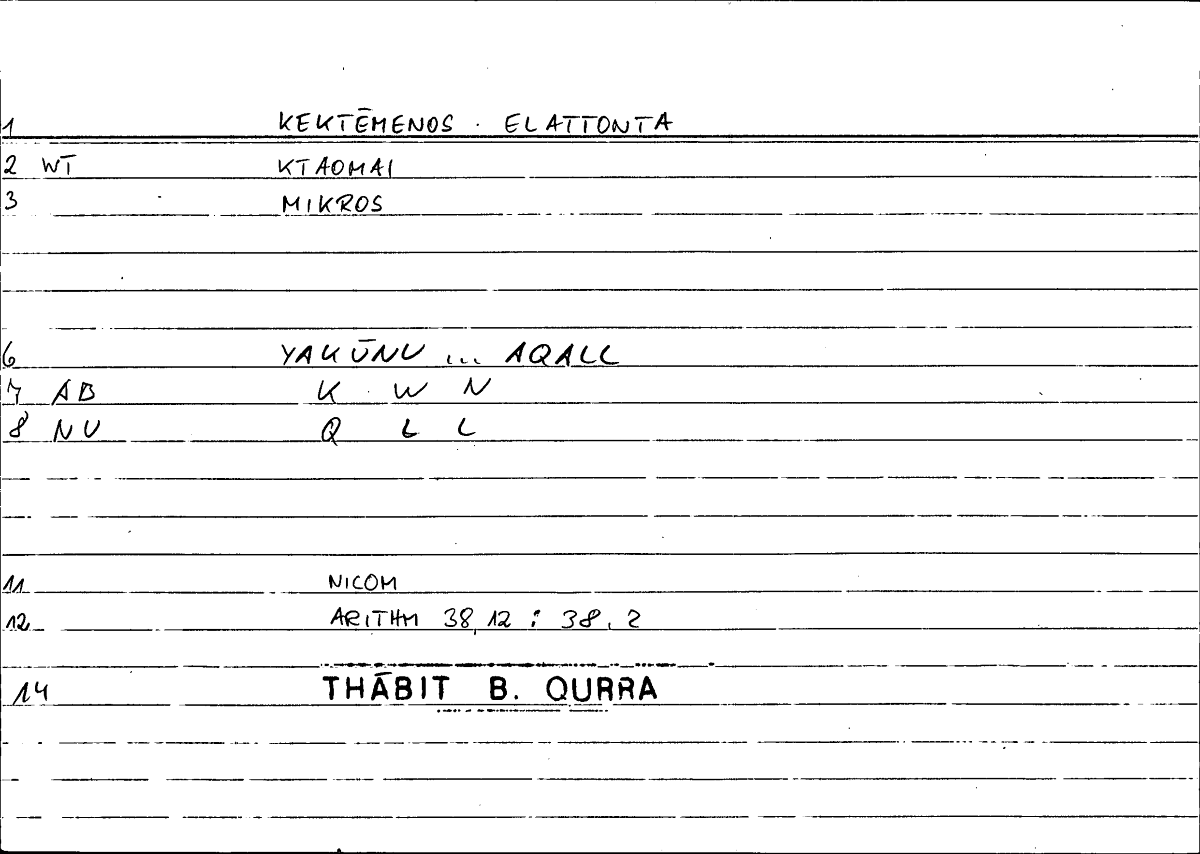 1 KEKTĒMENOS . ELATTONTA
2 WT KTAOMAI
3 MIKROS
6 YAKŪNU ... AQALL
7 AB K W N
8 NU Q L L
11 NICOM
12 ARITHM 38,12 : 38,2
14 THĀBIT B. QURRA